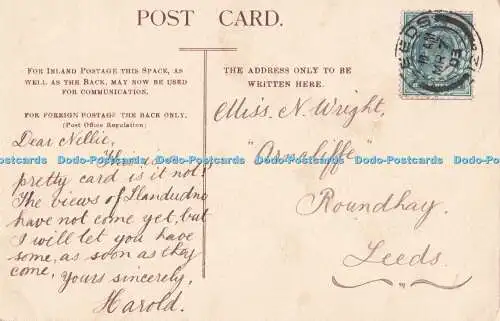 POST CARD.
FOR INLAND POSTAGE THIS SPACE, AS
WELL AS THE BACK, MAY NOW BE USED
FOR COMMUNICATION.
FOR FOREIGN POSTAGE THE BACK ONLY.
(Post Office Regulation)
THE ADDRESS ONLY TO BE
WRITTEN HERE.
Dear Nellie,
This is a
pretty card is it not!
The views of Llandudno
have not come yet, but
I will let you have
some, as soon as they
come, Yours sincerely,
Harold.
Miss. N. Wright,
"Arncliffe"
Roundhay.
Leeds.
LEEDS
Dodo-Postcards Dodo-Postcards Dodo-Postcards Dodo-Postcards Dodo-Postcards Dodo-Postcards